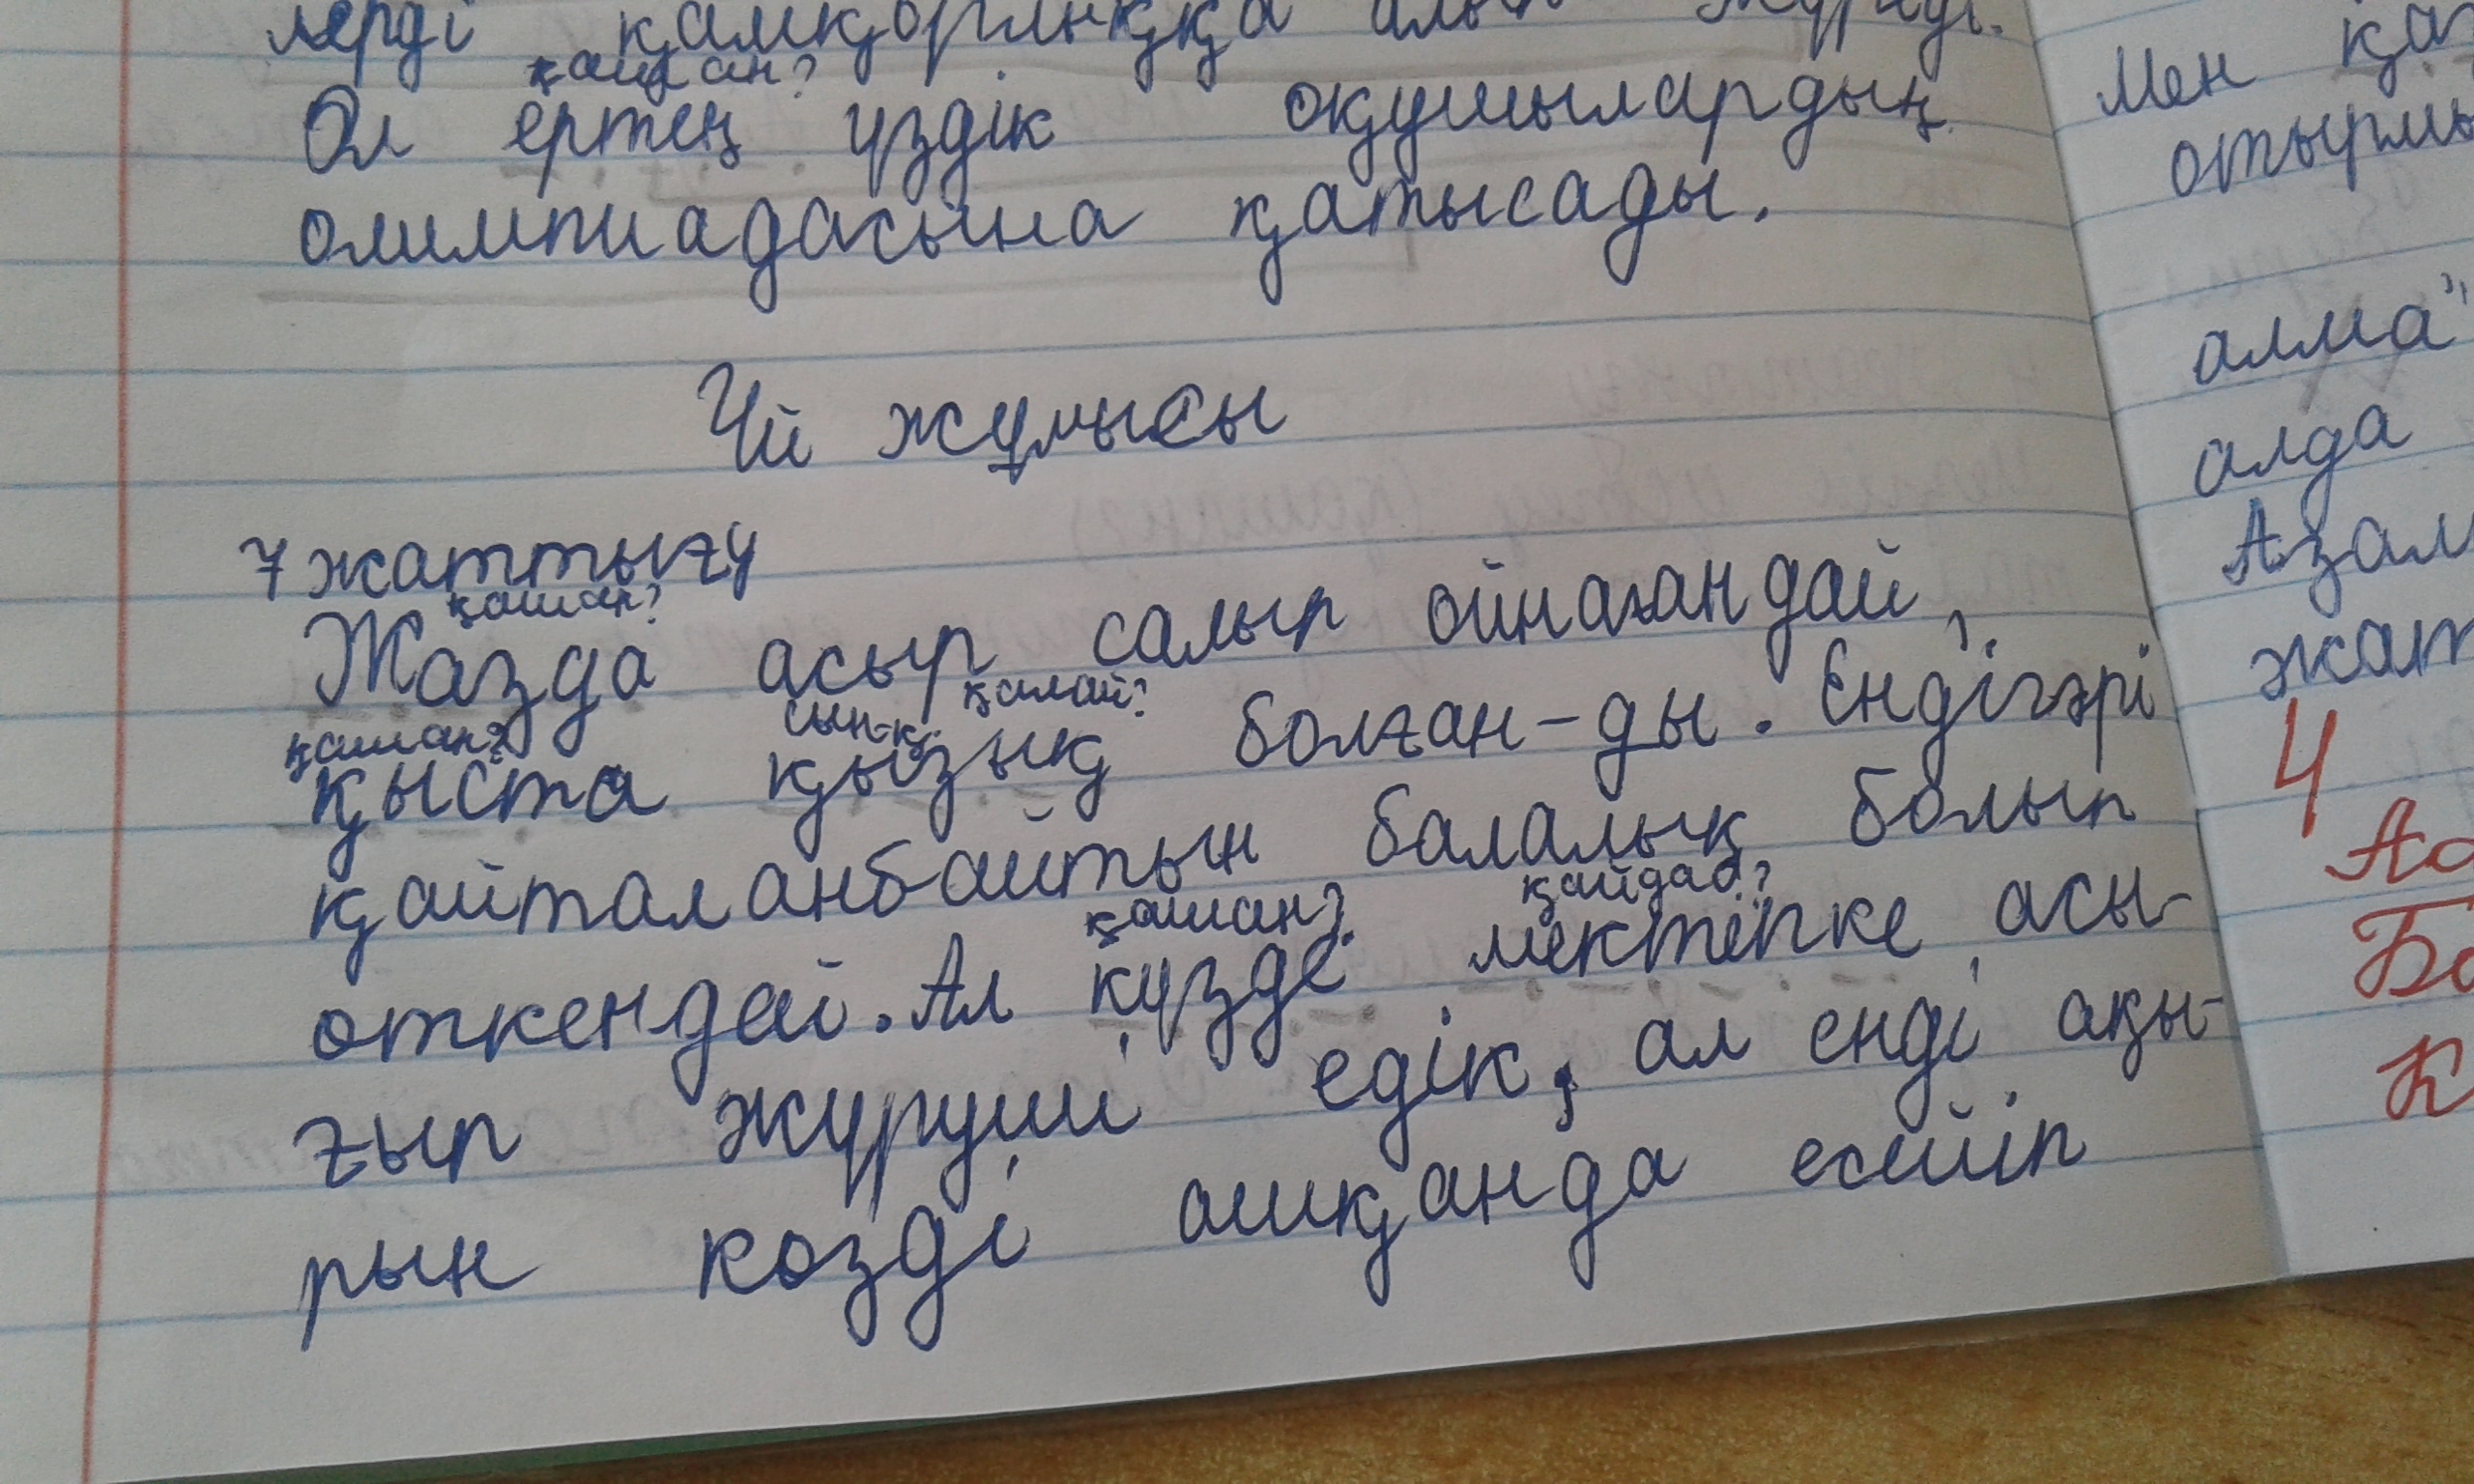 лерді қамқорлыққа алып жүреді.
қашан?
Ол ертең үздік оқушылардың
олимпиадасына қатысады.
Үй жұмысы
7 жаттығу
қашан?
Жазда асыр салып ойнағандай,
қашан? сын-қ. қалай?
қыста қызық болған-ды. Ендігәрі
қайталанбайтын балалық болып
қашан? қайдаа?
өткендей. Ал күзде мектепке асы-
ғып жүруші едік, ал енді ақы-
рын көзді ашқанда есейіп
Мен
отырмы
алма"
алда
Азам
жат
4
Ад
Бо
К